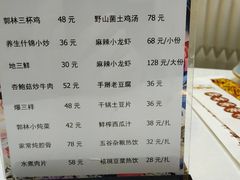 郭林三杯鸡 48 元 野山菌土鸡汤 78 元
养生什锦小炒 36 元 麻辣小龙虾 68 元/小份
地三鲜 30 元 麻辣小龙虾 128 元/大份
杏鲍菇炒牛肉 52 元 手掰老豆腐 36 元
爆三样 48 元 干锅土豆片 36 元
郭林小炖菜 42 元 鲜榨西瓜汁 38 元/扎
家常炖腔骨 78 元 五谷杂粮热饮 32 元/扎
水煮肉片 58 元 核桃豆浆热饮 28 元/扎